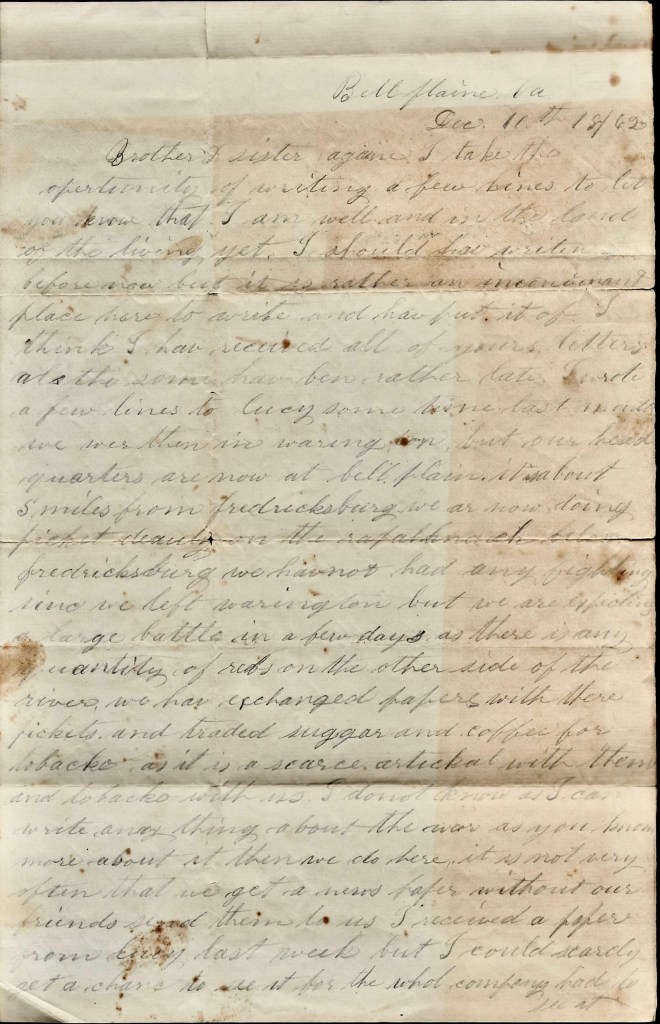 Bell plaine Va
Dec. 11th 1862
Brother & sister again I take the
opertunity of writing a few lines to let
you know that I am well and in the land
of the living yet. I should hav writen
before now but it is rather an inconveniant
place here to write and hav put it of I
think I hav received all of yours letters
als the some hav ben rather late I wrote
a few lines to lucy some time last month
we wer then in warington, but our head
quarters are now at bell plain. it is about
5 miles from fredricksburg we ar now doing
picket deauty on the below
fredricksburg we hav not had any fighting
sinc we left warington but we are expecting
a large battle in a few days as there is any
quantity of rebs on the other side of the
river, we hav exchanged papers with there
pickets. and traded suggar and coffee for
tobacko as it is a scarce artickal with them
and tobacko with us. I do not know as I can
write any thing about the war as you know
more about it then we do here, it is not very
often that we get a news paper without our
friends send them to us I received a paper
from lucy last week but I could scarcly
get a chanc to see it for the whol company had to
see it